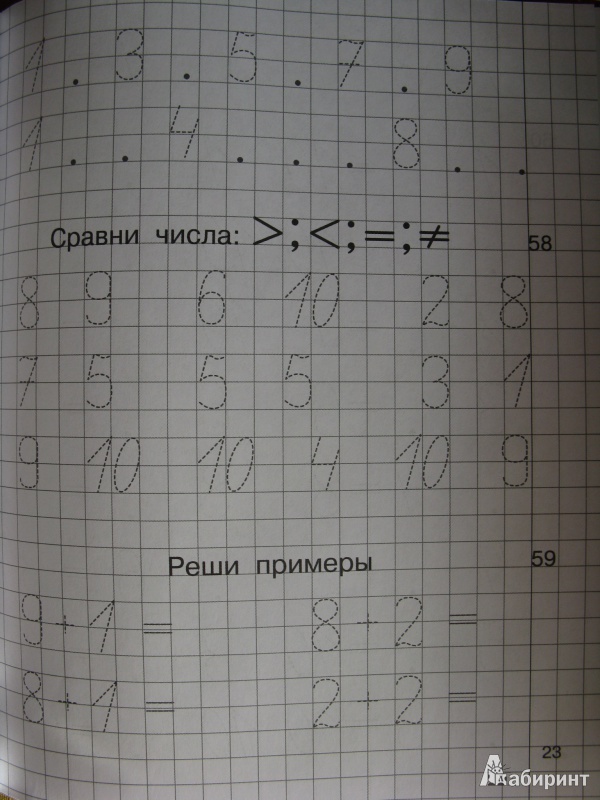 1 . 3 . 5 . 7 . 9
1 . . 4 . . . 8 . .
Сравни числа: >; <; =; ≠ 58
8 9 6 10 2 8
7 5 5 5 3 1
9 10 10 4 10 9
Реши примеры 59
9 + 1 = 8 + 2 =
8 + 1 = 2 + 2 =
23
Лабиринт